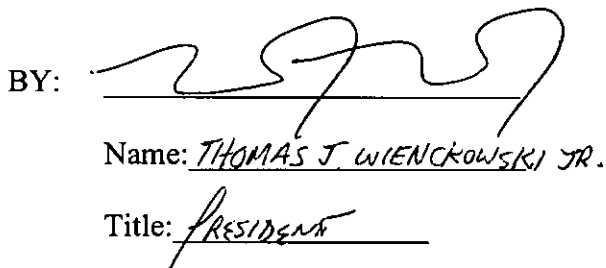 BY:
Name: THOMAS J. WIENCKOWSKI JR.
Title: PRESIDENT